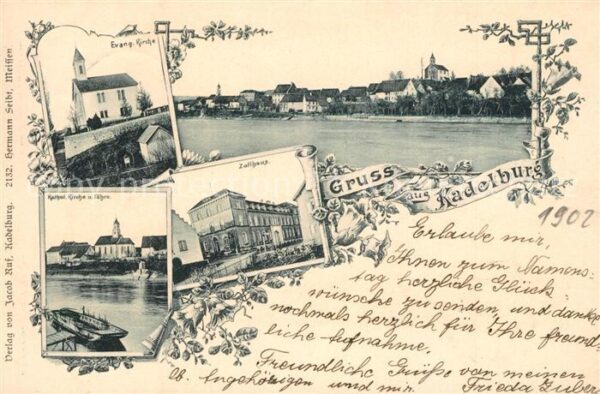 Evang. Kirche
Zollhaus.
Kathol. Kirche u. Fähre.
Gruss aus Kadelburg
Verlag von Jacob Ruf, Kadelburg. 2132. Hermann Seibt, Meissen
1902
Erlaube mir,
Ihnen zum Namens-
tag herzliche Glück-
wünsche zu senden, und danke
nochmals herzlich für Ihre freund-
liche Aufnahme.
Freundliche Grüße von meinen
lb. Angehörigen und mir. Frieda Zuber